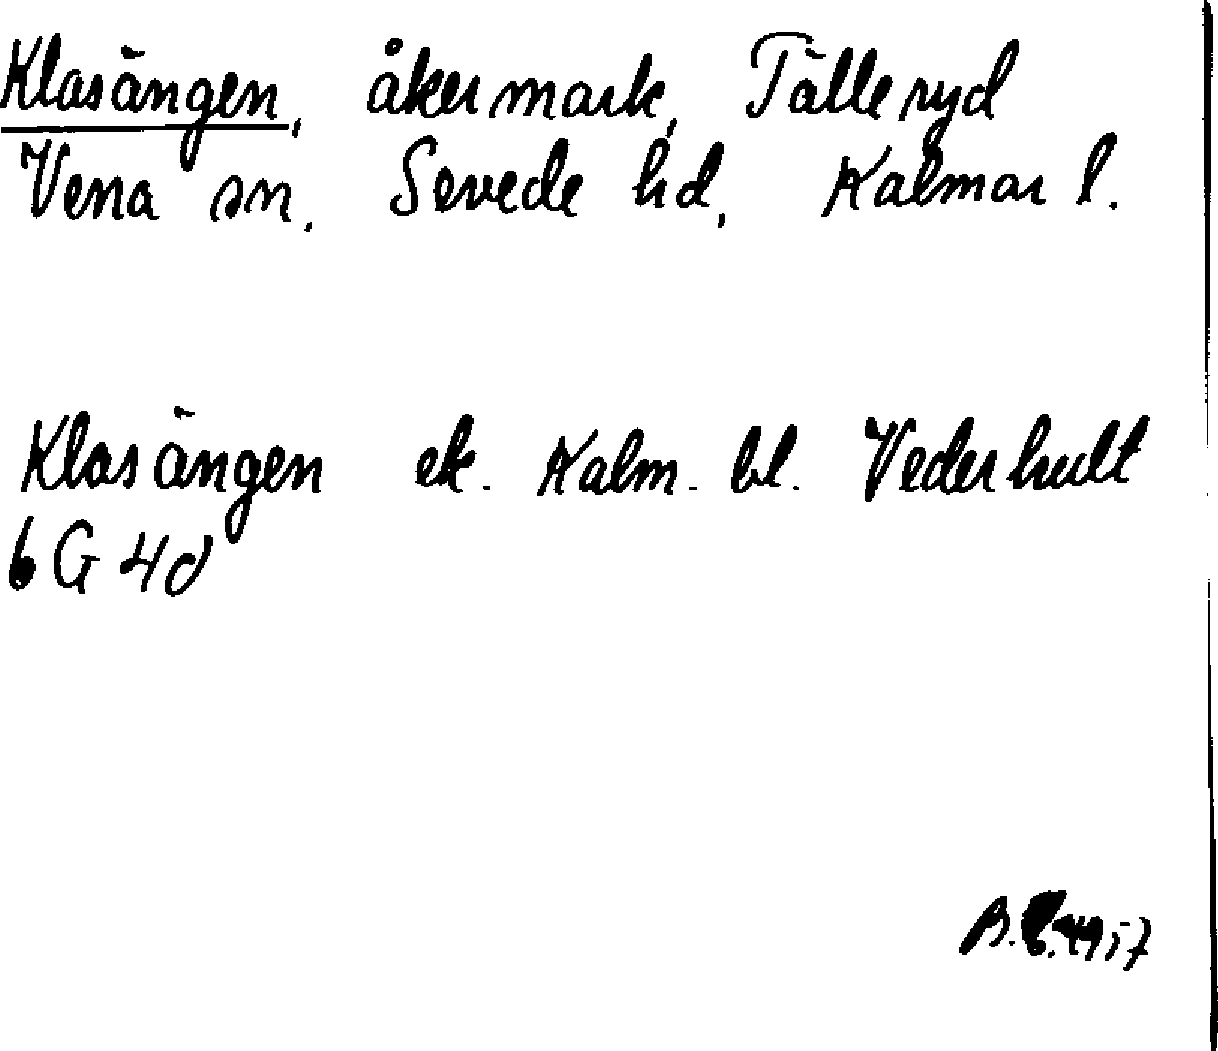 Klasängen, åkermark, Tälleryd
Vena sn, Sevede hd, Kalmar l.
Klasängen ek. Kalm. bl. Vederhult
6G 4d